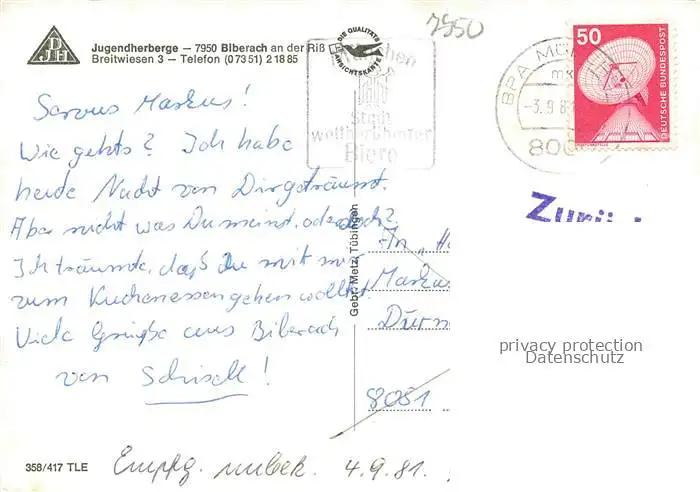 7950
DJH
Jugendherberge – 7950 Biberach an der Riß
Breitwiesen 3 – Telefon (07351) 21885
DIE QUALITÄTS
ANSICHTSKARTE
München
Stadt
weltberühmter
Biere
BPA MÜ
mk
-3.9.8
800
50
DEUTSCHE BUNDESPOST
Servus Markus!
Wie gehts? Ich habe
heute Nacht von Dir geträumt.
Aber nicht was Du meinst, oder doch?
Ich träumte, daß Du mit mir
zum Kuchenessen gehen wolltest.
Viele Grüße aus Biberach
von !
Gebr. Metz, Tübingen
Zurü
An
Markus
Dürr
8051
privacy protection
Datenschutz
358/417 TLE
Empfg. unbek. 4.9.81.